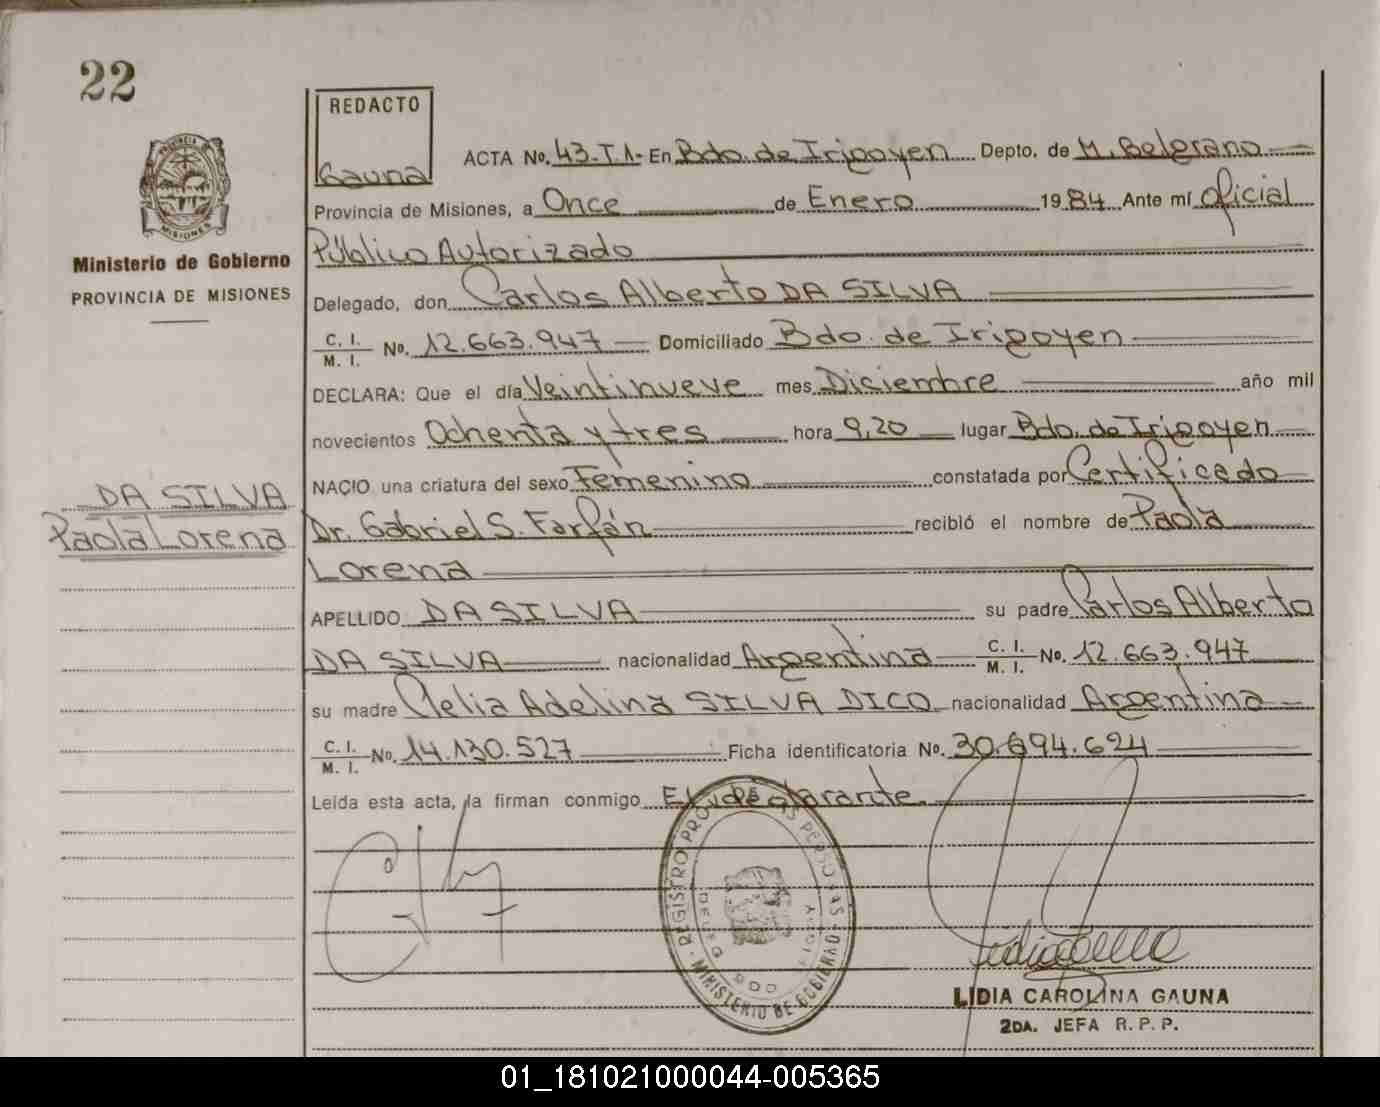 22
REDACTO
Gauna
ACTA No. 43.T1- En Bdo. de Irigoyen Depto. de M. Belgrano
Provincia de Misiones, a Once de Enero 1984 Ante mí Oficial
Público Autorizado
PROVINCIA DE MISIONES
Ministerio de Gobierno
PROVINCIA DE MISIONES
Delegado, don Carlos Alberto DA SILVA
C. I. M. I. No. 12.663.947 Domiciliado Bdo. de Irigoyen
DECLARA: Que el día Veintinueve mes Diciembre año mil
novecientos Ochenta y tres hora 9,20 lugar Bdo. de Irigoyen
NACIO una criatura del sexo Femenino constatada por Certificado
DA SILVA
Paola Lorena
Dr. Gabriel S. Farfán recibió el nombre de Paola
Lorena
APELLIDO DA SILVA su padre Carlos Alberto
DA SILVA nacionalidad Argentina C. I. M. I. No. 12.663.947
su madre Clelia Adelina SILVA DICO nacionalidad Argentina
C. I. M. I. No. 14.130.527 Ficha identificatoria No. 30.694.624
Leída esta acta, la firman conmigo El declarante.
REGISTRO PROV. DE LAS PERSONAS
MINISTERIO DE GOBIERNO
LIDIA CAROLINA GAUNA
2DA. JEFA R. P. P.
01_181021000044-005365